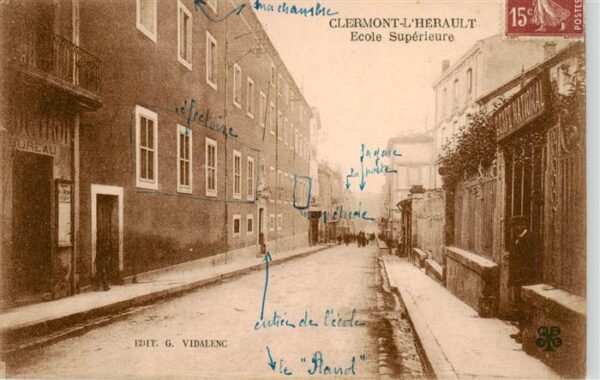 ma chambre
CLERMONT-L'HÉRAULT
Ecole Supérieure
15c
POSTES
réfectoire
BUREAU
NATIONAL
la gare
la poste
étude
entrée de l'école
EDIT. G. VIDALENC
le "Planol"